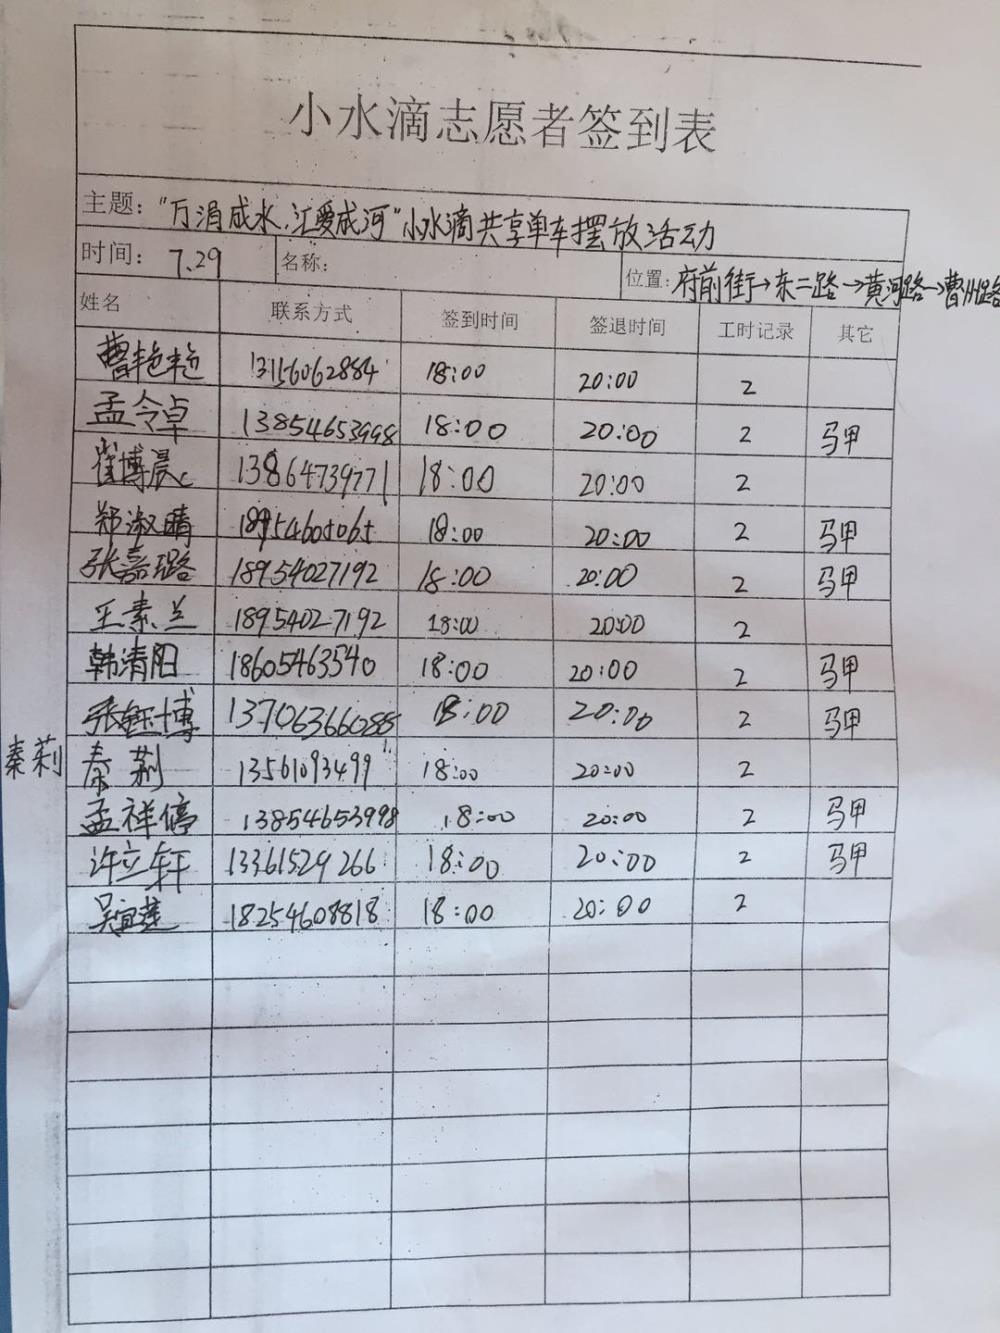 小水滴志愿者签到表
主题："万涓成水，汇爱成河"小水滴共享单车摆放活动
时间：7.29 名称： 位置：府前街→东二路→黄河路→曹州路
姓名 联系方式 签到时间 签退时间 工时记录 其它
曹艳艳 13156062884 18:00 20:00 2
孟令卓 13854653998 18:00 20:00 2 马甲
崔博晨 13864739771 18:00 20:00 2
郑淑晴 18954605065 18:00 20:00 2 马甲
张嘉璐 18954027192 18:00 20:00 2 马甲
王素兰 18954027192 18:00 20:00 2
韩清阳 18605463540 18:00 20:00 2 马甲
张钰博 13706366088 18:00 20:00 2 马甲
秦莉 秦莉 13561093499 18:00 20:00 2
孟祥停 13854653998 18:00 20:00 2 马甲
许立轩 13361529266 18:00 20:00 2 马甲
吴宜莲 18254608818 18:00 20:00 2